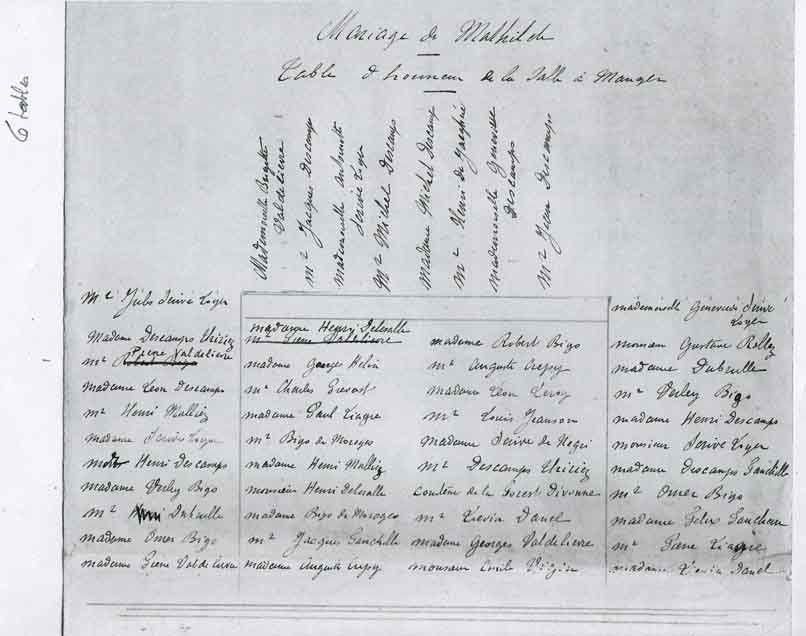 6 tables
Mariage de Mathilde
Table d'honneur de la Salle à Manger
Mademoiselle Brigitte
Valdelièvre
Mr Jacques Descamps
Mademoiselle Antoinette
Scrive Loyer
Mr Michel Descamps
Madame Michel Descamps
Mr Henri de
Mademoiselle Geneviève
Descamps
Mr Jean Descamps
Mr Jules Scrive Loyer
Madame Descamps Vrigiez
Pierre Valdelièvre
Mr Robert Bigo
Madame Léon Descamps
Mr Henri Mulliez
Madame Scrive Loyer
Mr Henri Descamps
Madame Verley Bigo
Mr Dubrulle
Madame Omer Bigo
Madame Pierre Valdelièvre
Madame Henri Delesalle
Mr Pierre Valdelièvre
Madame Georges Hélin
Mr Charles Prevost
Madame Paul Tiagre
Mr Bigo de Moroges
Madame Henri Mulliez
Monsieur Henri Delesalle
Madame Bigo de Moroges
Mr Jacques Ganchille
Madame Auguste Crespy
Madame Robert Bigo
Mr Auguste Crespy
Madame Léon Leroy
Mr Louis Jeanson
Madame Scrive de Negri
Mr Descamps Vrigiez
Comtesse de la Forest Divonne
Mr Liévin Danel
Madame Georges Valdelièvre
Monsieur Emile
Mademoiselle Geneviève Scrive
Loyer
Monsieur Gustave Rollez
Madame Dubrulle
Mr Verley Bigo
Madame Henri Descamps
Monsieur Scrive Loyer
Madame Descamps Ganchille
Mr Omer Bigo
Madame Felix
Mr Pierre Tiagre
Madame Liévin Danel